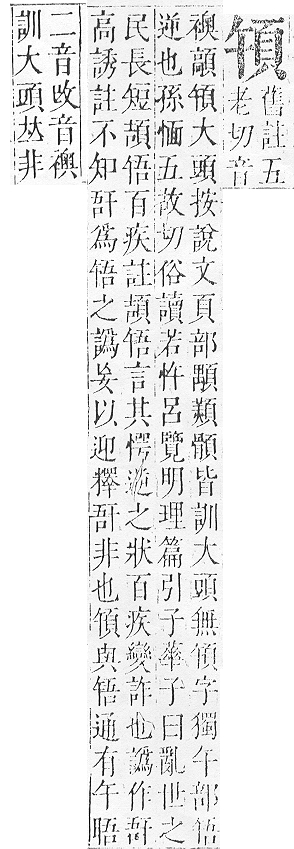 舊註五
老切音
襖顛大頭按說文頁部皆訓大頭無字獨午部啎
逆也孫愐五故切俗讀若忤呂覽明理篇引子華子曰亂世之
民長短頡啎百疾註頡啎言其愕逆之狀百疾變詐也譌作
高誘註不知為啎之譌妄以迎釋非也與啎通有午晤
二音改音襖
訓大頭𠀤非